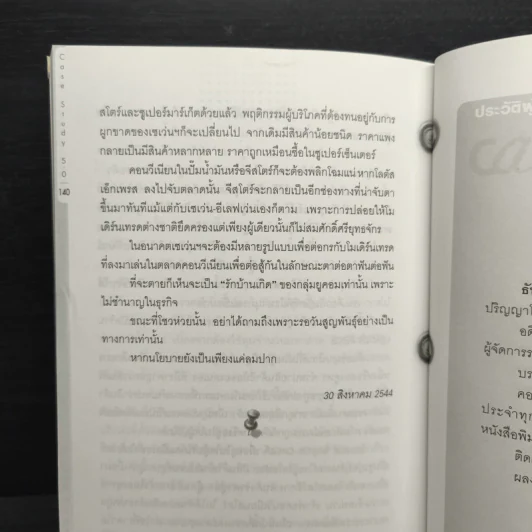 Case Study 50
140
สโตร์และซูเปอร์มาร์เก็ตด้วยแล้ว พฤติกรรมผู้บริโภคที่ต้องทนอยู่กับการ
ผูกขาดของเซเว่นฯก็จะเปลี่ยนไป จากเดิมมีสินค้าน้อยชนิด ราคาแพง
กลายเป็นมีสินค้าหลากหลาย ราคาถูกเหมือนซื้อในซูเปอร์เซ็นเตอร์
คอนวีเนียนในปั๊มน้ำมันหรือจีสโตร์ก็จะต้องพลิกโฉมแน่ หากโลตัส
เอ็กเพรส ลงไปจับตลาดนั้น จีสโตร์จะกลายเป็นอีกช่องทางที่น่าจับตา
ขึ้นมาทันทีแม้แต่กับเซเว่น-อีเลฟเว่นเองก็ตาม เพราะการปล่อยให้โม
เดิร์นเทรดต่างชาติยึดครองแต่เพียงผู้เดียวนั้นก็ไม่สมศักดิ์ศรียุทธจักร
ในอนาคตเซเว่นฯจะต้องมีหลายรูปแบบเพื่อต่อกรกับโมเดิร์นเทรด
ที่ลงมาเล่นในตลาดคอนวีเนียนเพื่อต่อสู้กันในลักษณะตาต่อตาฟันต่อฟัน
ที่จะตายก็เห็นจะเป็น “รักบ้านเกิด” ของกลุ่มยูคอมเท่านั้น เพราะ
ไม่ชำนาญในธุรกิจ
ขณะที่โชวห่วยนั้น อย่าได้ถามถึงเพราะรอวันสูญพันธุ์อย่างเป็น
ทางการเท่านั้น
หากนโยบายยังเป็นเพียงแค่ลมปาก
30 สิงหาคม 2544
ประวัติผู้
ปริญญา
ผู้จัดการ
ประจำทุก
หนังสือพิม
ติด
ผลง